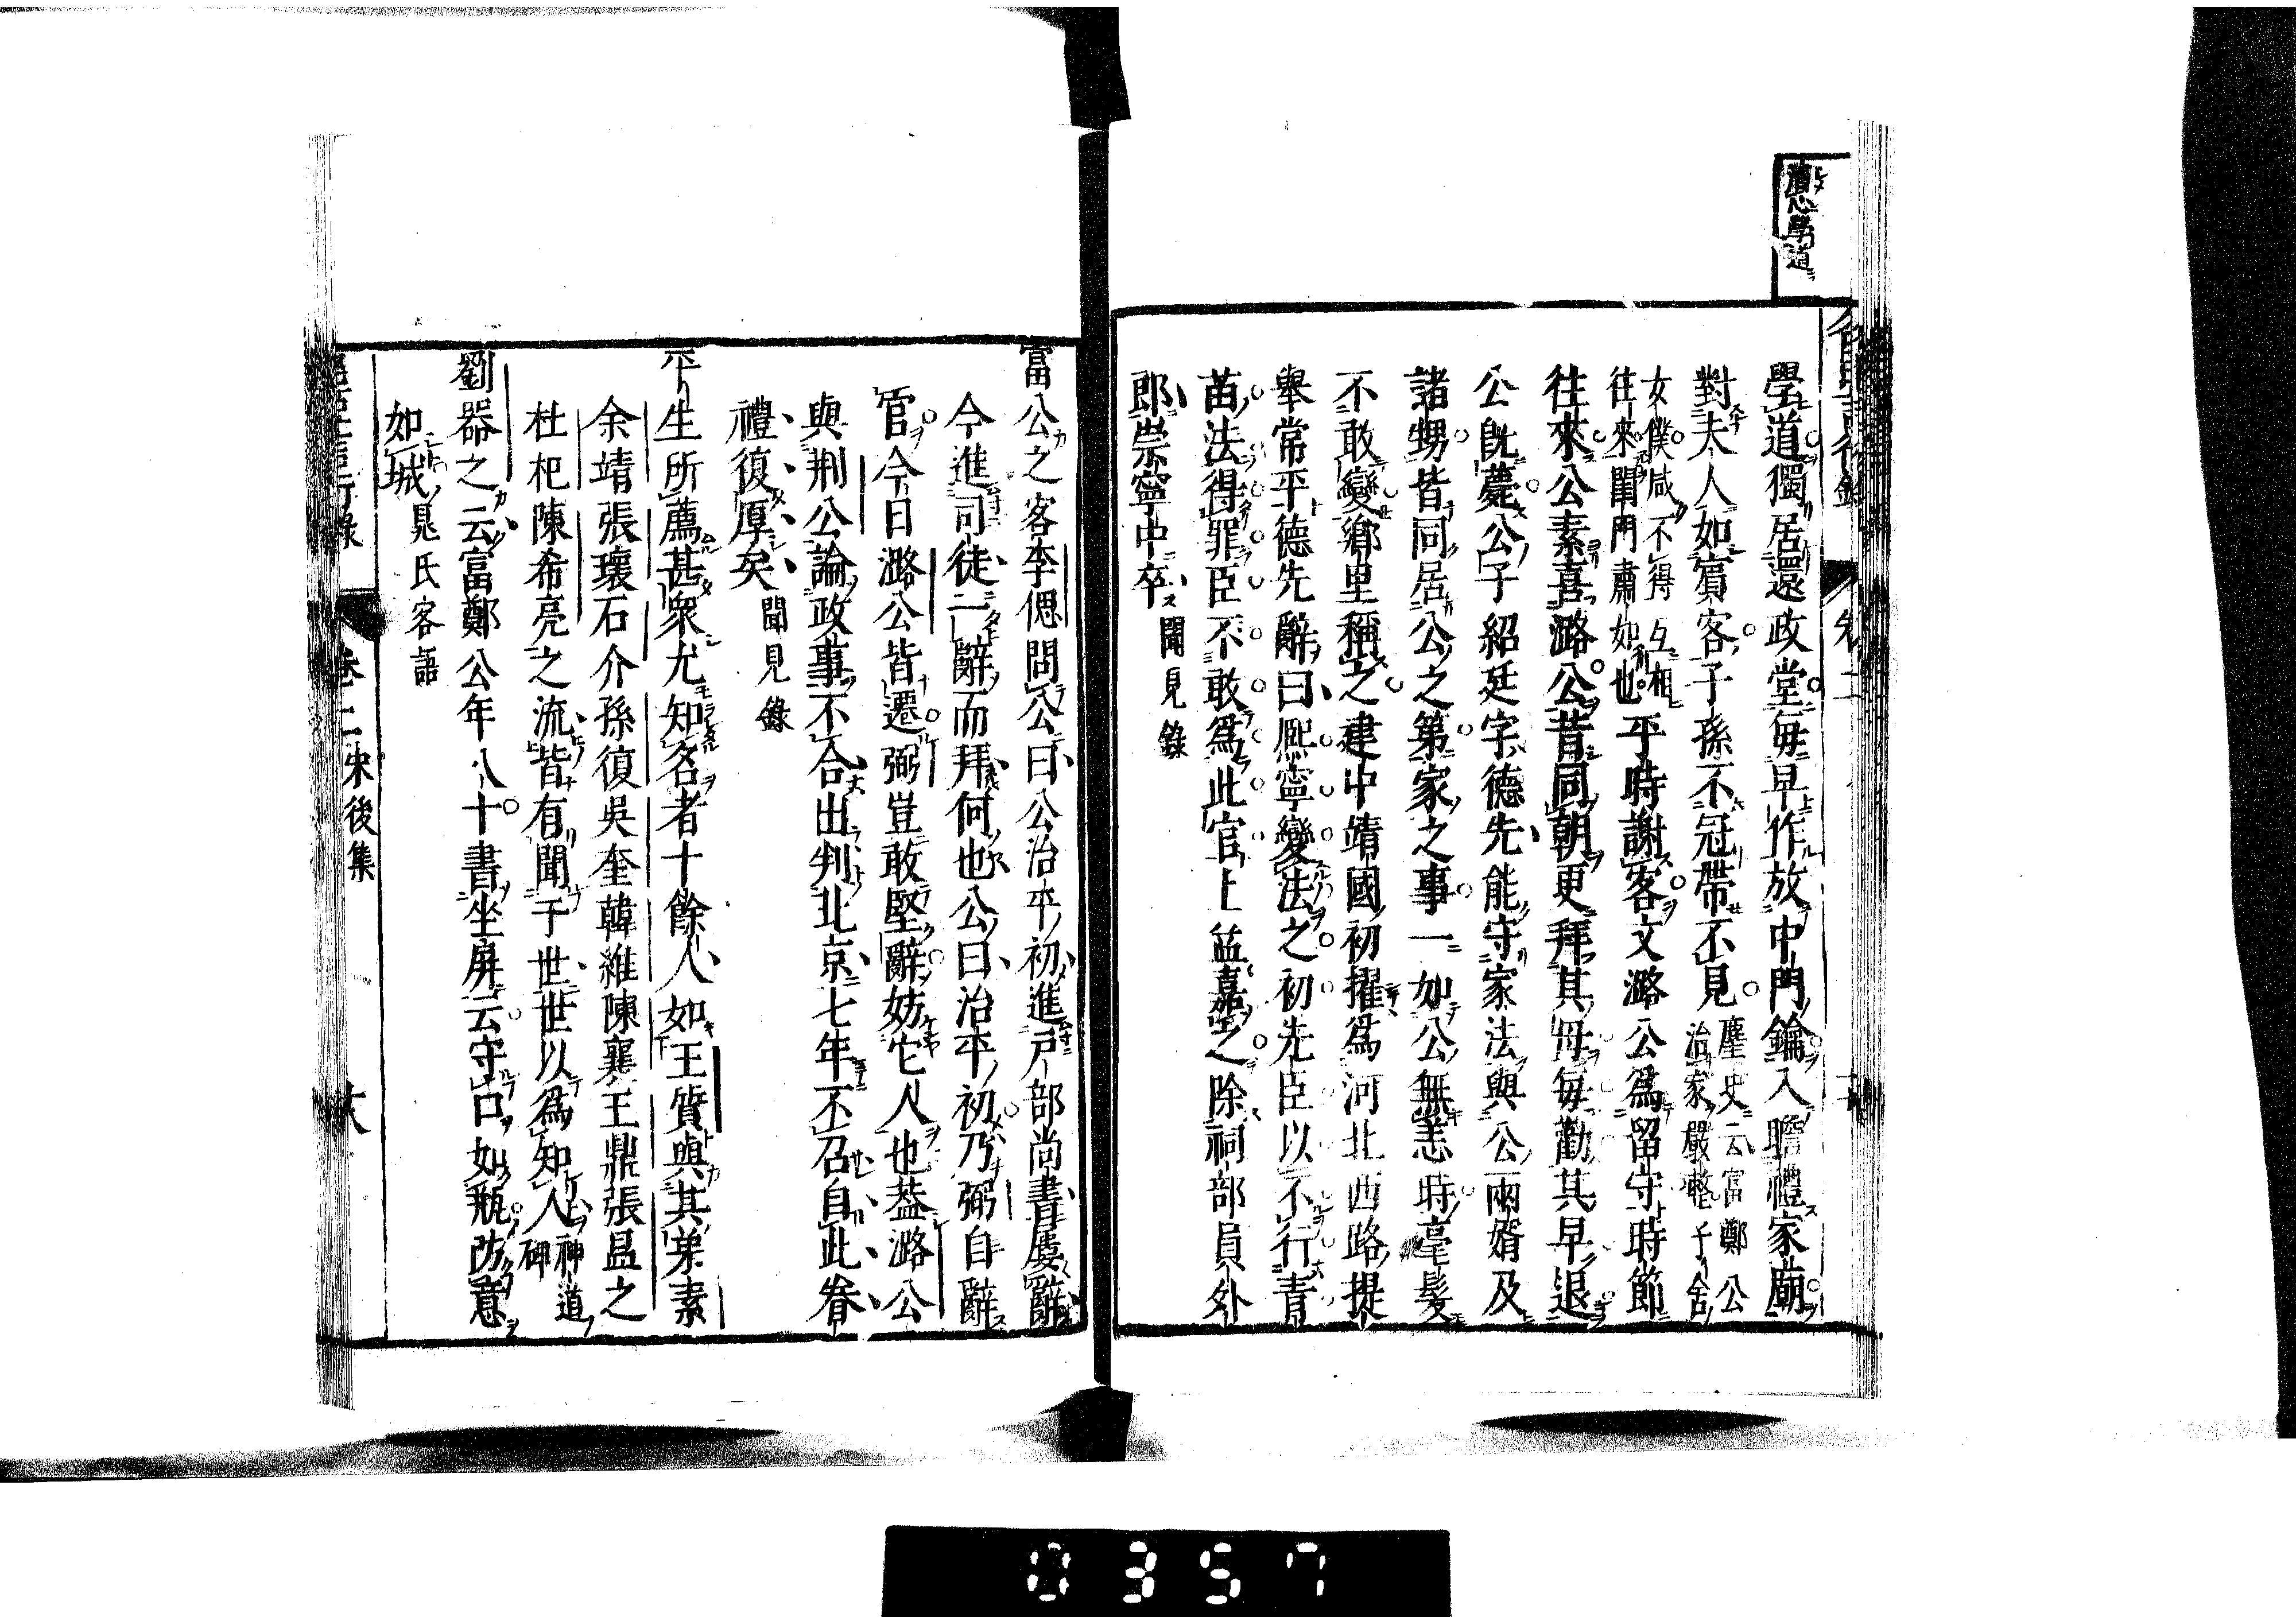 學道
學道獨居還政堂毎早作放中門鑰入瞻禮家廟
對夫人如賓客子孫不冠帶不見塵史云富鄭公
治家嚴整子舍
女僕咸不得互相
往來閨門肅如也平時謝客文潞公爲留守時節
往來公素喜潞公昔同朝更拜其母毎勸其早退
公旣薨公子紹廷字德先能守家法與公兩婿及
諸甥皆同居公之第家之事一如公無恙時毫髮
不敢變鄉里稱之建中靖國初擢爲河北西路提
舉常平德先辭曰熈寧變法之初先臣以不行青
苗法得罪臣不敢爲此官上益嘉之除祠部員外
郎崇寧中卒聞見錄
富公之客李偲問公曰公治平初進戸部尚書屢辭
今進司徒一辭而拜何也公曰治平初乃弼自辭
官今日潞公皆遷弼豈敢堅辭妨它人也葢潞公
與荆公論政事不合出判北京七年不召自此眷
禮復厚矣聞見錄
平生所薦甚衆尤知名者十餘人如王質與其弟素
余靖張瓌石介孫復吳奎韓維陳襄王鼎張昷之
杜杞陳希亮之流皆有聞于世世以爲知人神道
碑
劉器之云富鄭公年八十書坐屏云守口如瓶防意
如城晁氏客語
卷二宋後集
0357